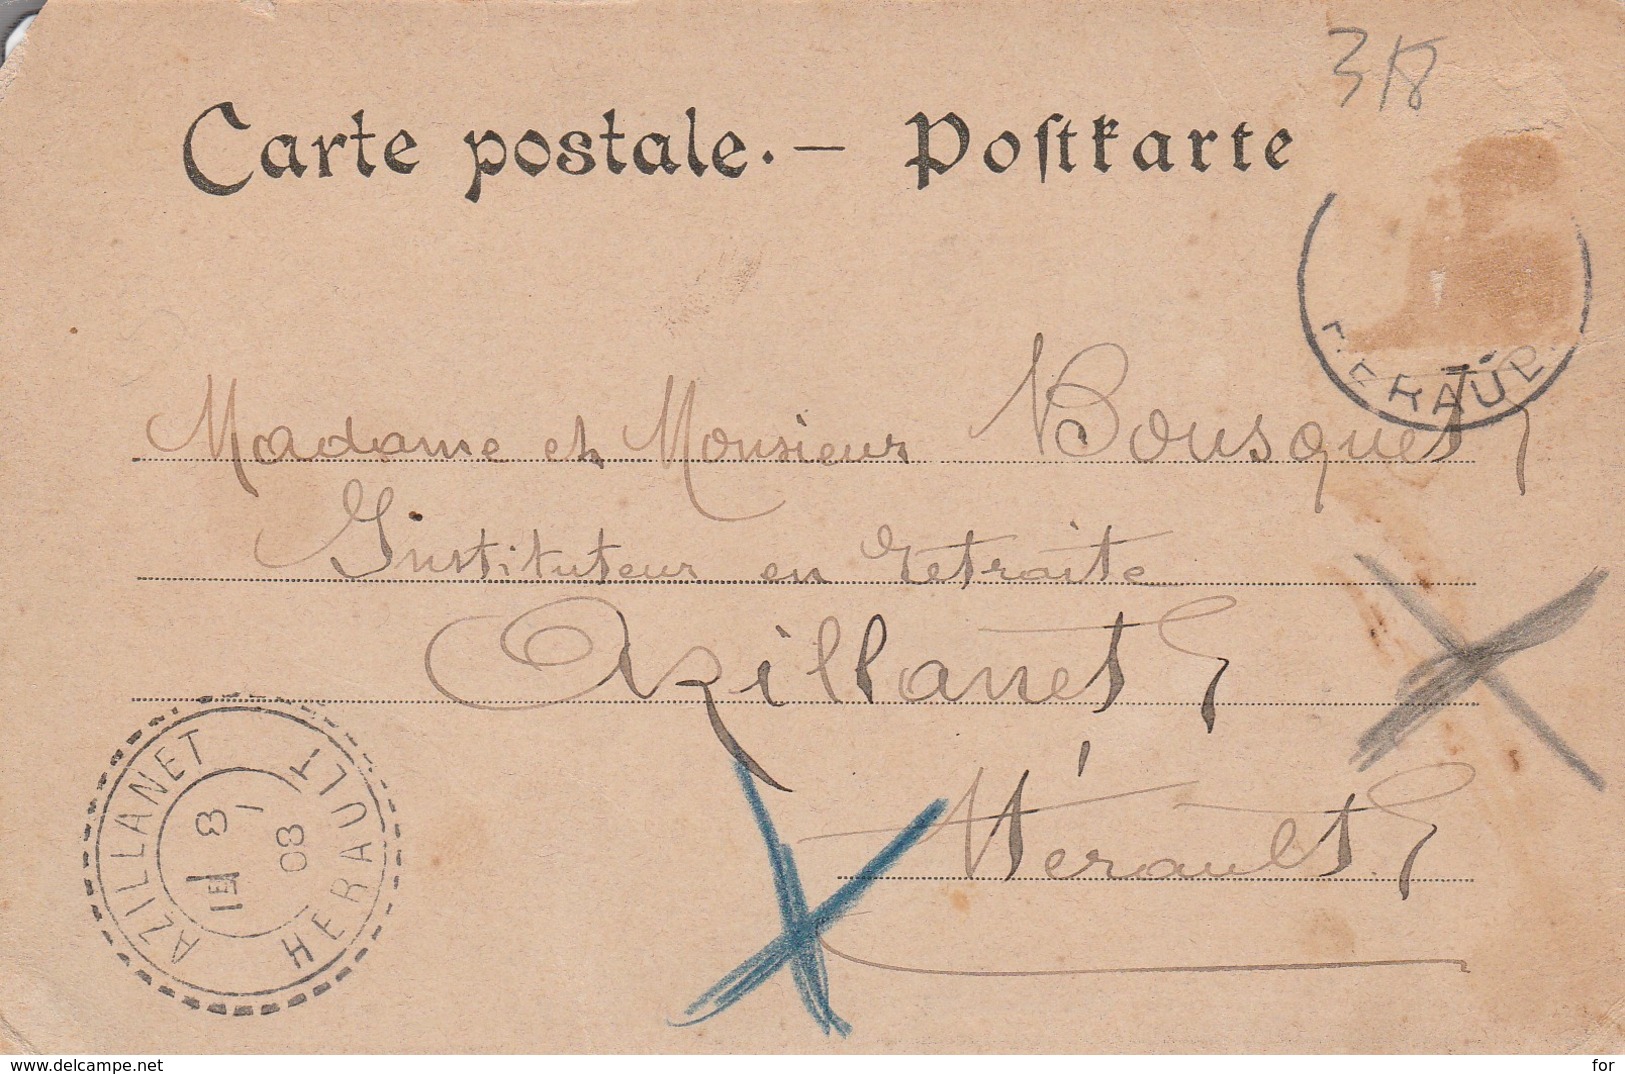 318
Carte postale. — Postkarte
HERAULT
Madame et Monsieur Bousquet
Instituteur en retraite
Azillanet
Hérault
AZILLANET
HERAULT
8
03
www.delcampe.net
for